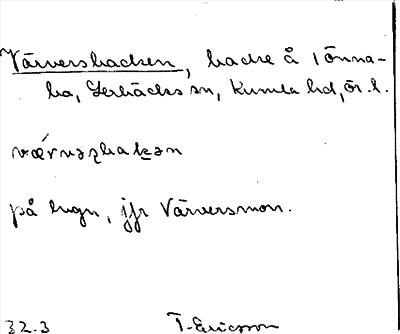 Värversbacken, backe å Tönna-
ba, Lerbäcks sn, Kumla hd, Ör. l.
værvəʂbakən
på hugn, jfr Värversmon.
32.3 T. Ericsson